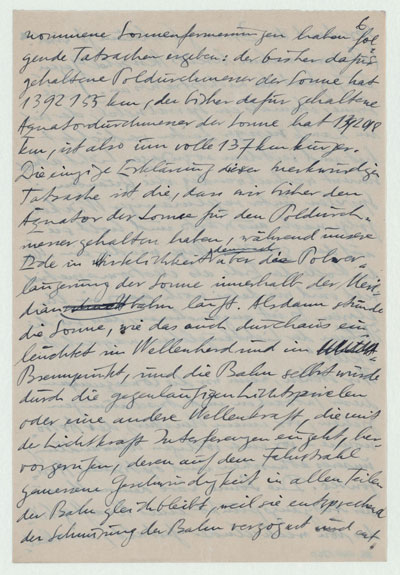 6
nommene Sonnenfernmessungen haben fol
gende Tatsachen ergeben: der bisher dafür
gehaltene Poldurchmesser der Sonne hat
1392155 km, der bisher dafür gehaltene
Äquatordurchmesser der Sonne hat
km, ist also um volle 137 km kürzer.
Die einzige Erklärung dieser merkwürdigen
Tatsache ist die, dass wir bisher den
Äquator der Sonne für den Poldurch-
messer gehalten haben, während unsere
Erde in Wirklichkeit über die Polver-
längerung der Sonne innerhalb der Meri
dian bahn läuft. Alsdann stünde
die Sonne, wie das auch durchaus ein
leuchtet im Wellenherd und im
Brennpunkt, und die Bahn selbst würde
durch die gegenläufigen Lichtspiralen
oder eine andere Wellenkraft, die mit
der Lichtkraft Interferenzen eingeht, her
vorgerufen, deren auf dem Fahrstrahl
gemessene Geschwindigkeit in allen Teilen
der Bahn gleichbleibt, weil sie entsprechend
der Schwingung der Bahn verzögert und